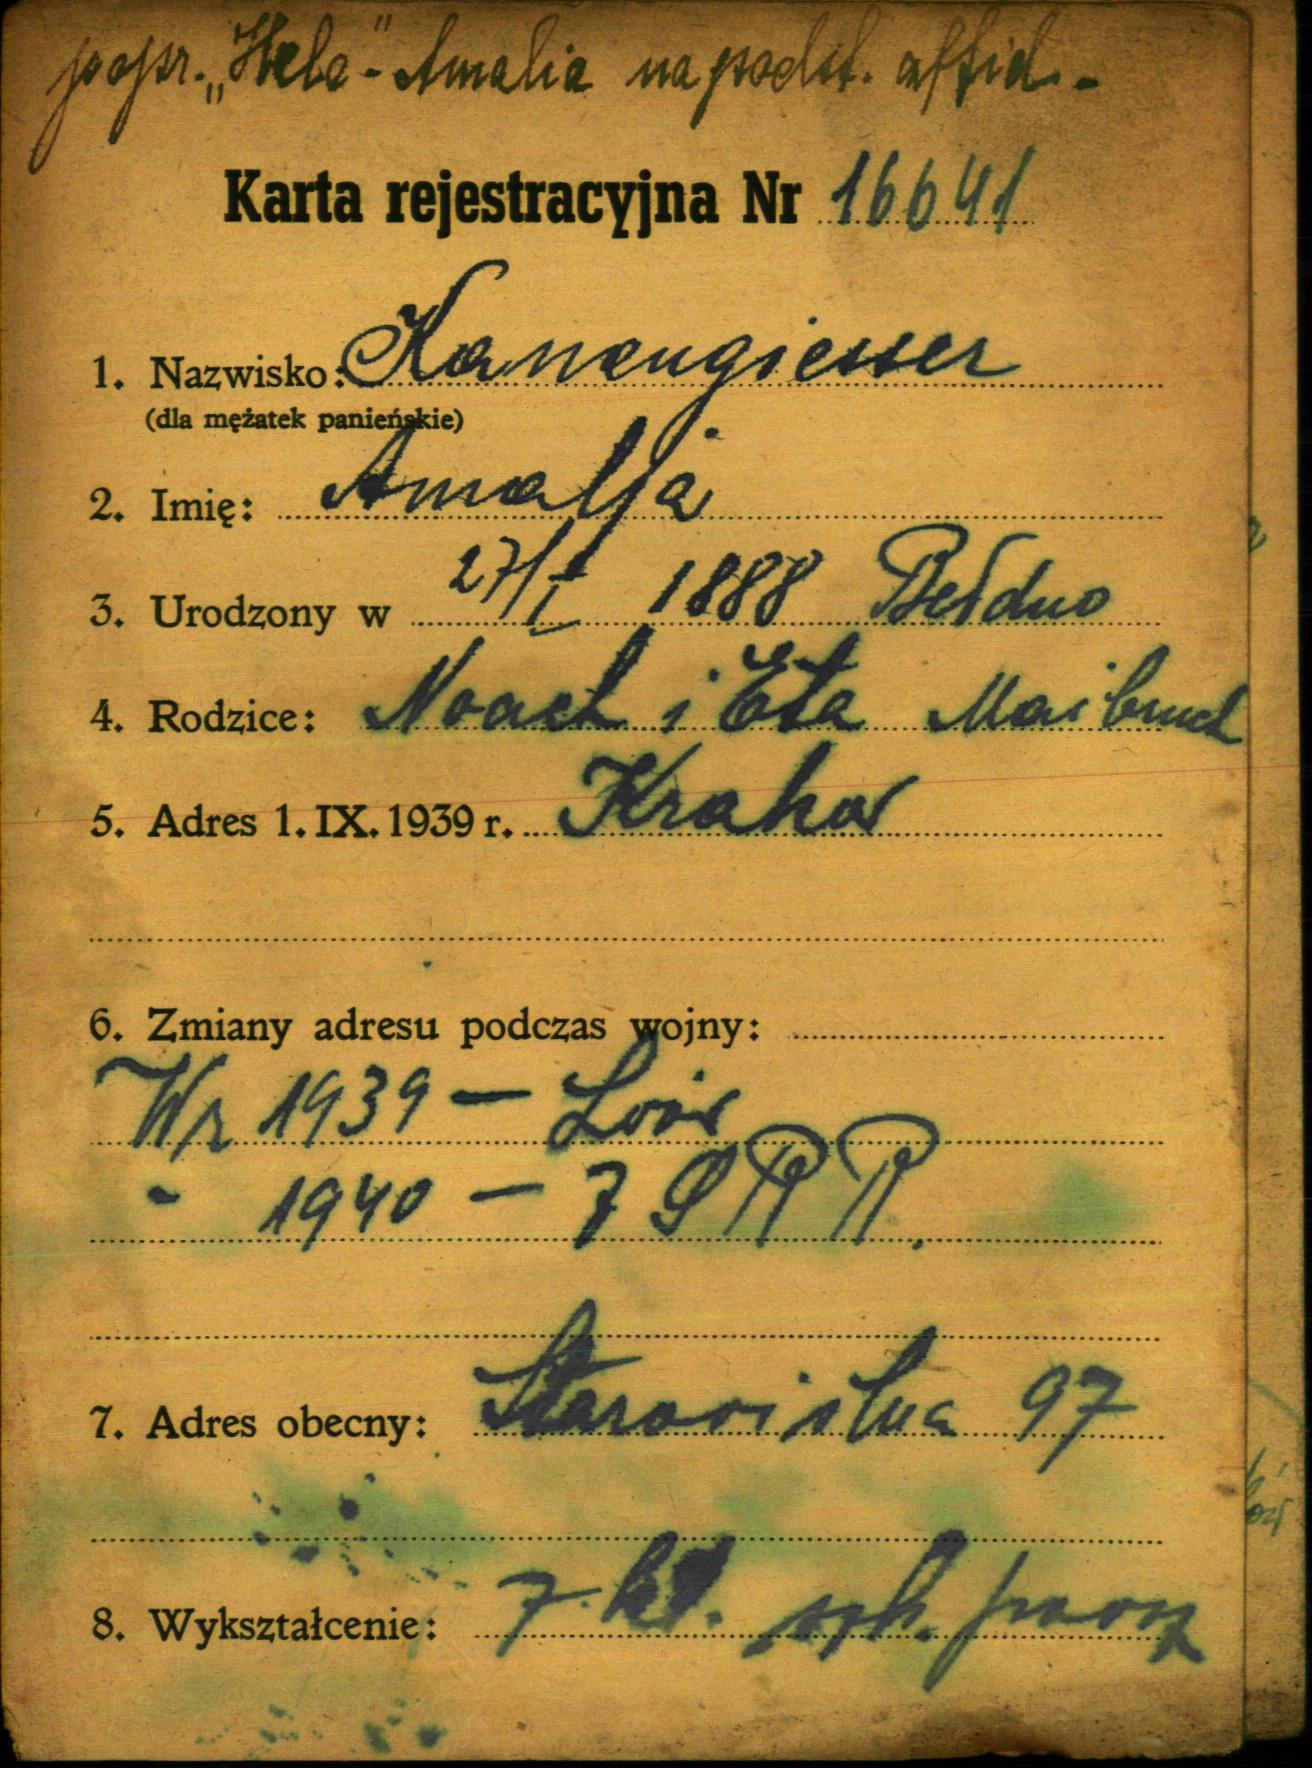 popr. „Hela" - Amalia na podst. affid. -
Karta rejestracyjna Nr 16641
1. Nazwisko: Kanengiesser
(dla mężatek panieńskie)
2. Imię: Amalja
3. Urodzony w 27/I 1888 Bełdno
4. Rodzice: Noach i Eta Maibruch
5. Adres 1. IX. 1939 r. Krakow
6. Zmiany adresu podczas wojny:
Wr 1939 — Lwów
" 1940 — Z S R R.
7. Adres obecny: Starowislna 97
8. Wykształcenie: 7. kl. szk. powsz